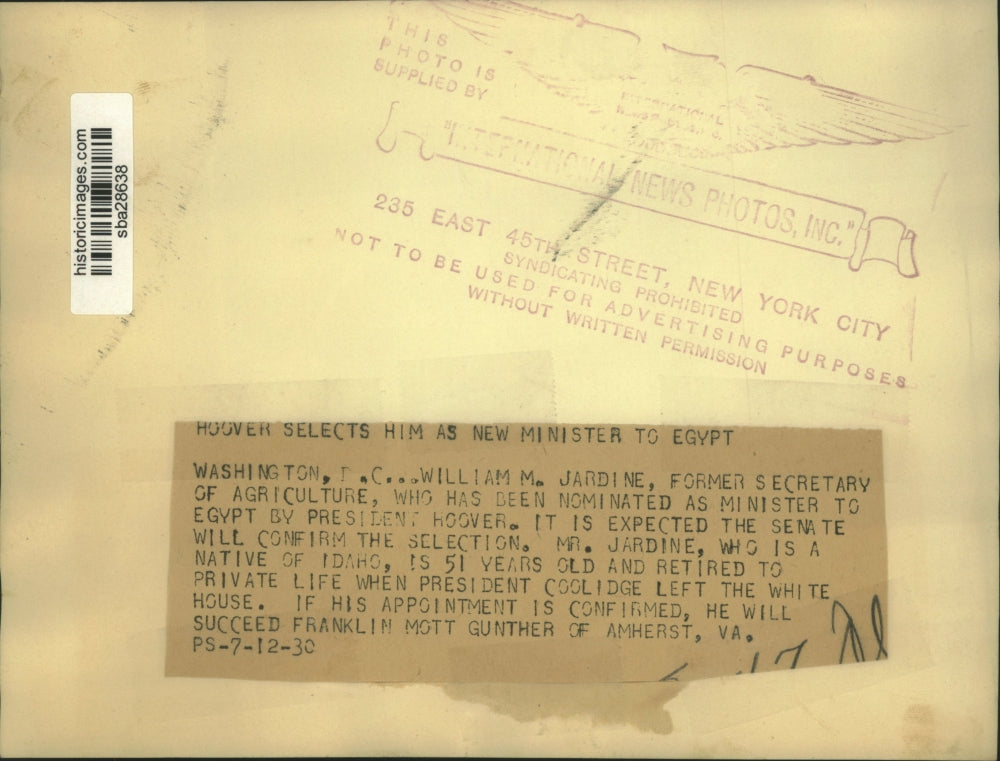 THIS
PHOTO IS
SUPPLIED BY
INTERNATIONAL
"INTERNATIONAL NEWS PHOTOS, INC."
235 EAST 45TH STREET, NEW YORK CITY
SYNDICATING PROHIBITED
NOT TO BE USED FOR ADVERTISING PURPOSES
WITHOUT WRITTEN PERMISSION
historicimages.com
sba28638
HOOVER SELECTS HIM AS NEW MINISTER TO EGYPT
WASHINGTON, D.C...WILLIAM M. JARDINE, FORMER SECRETARY
OF AGRICULTURE, WHO HAS BEEN NOMINATED AS MINISTER TO
EGYPT BY PRESIDENT HOOVER. IT IS EXPECTED THE SENATE
WILL CONFIRM THE SELECTION. MR. JARDINE, WHO IS A
NATIVE OF IDAHO, IS 51 YEARS OLD AND RETIRED TO
PRIVATE LIFE WHEN PRESIDENT COOLIDGE LEFT THE WHITE
HOUSE. IF HIS APPOINTMENT IS CONFIRMED, HE WILL
SUCCEED FRANKLIN MOTT GUNTHER OF AMHERST, VA.
PS-7-12-30